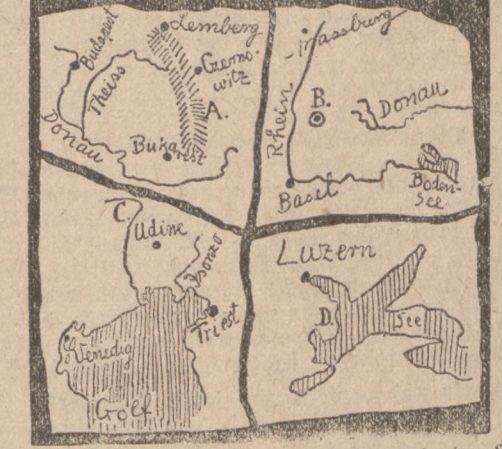 Lemberg
Budapest
Theiss
Czerno-
witz
A.
Donau
Bukarest
Strassburg
Rhein
B.
Donau
Basel
Boden-
See
C.
Udine
Isonzo
Triest
Venedig
Golf
Luzern
D.
See